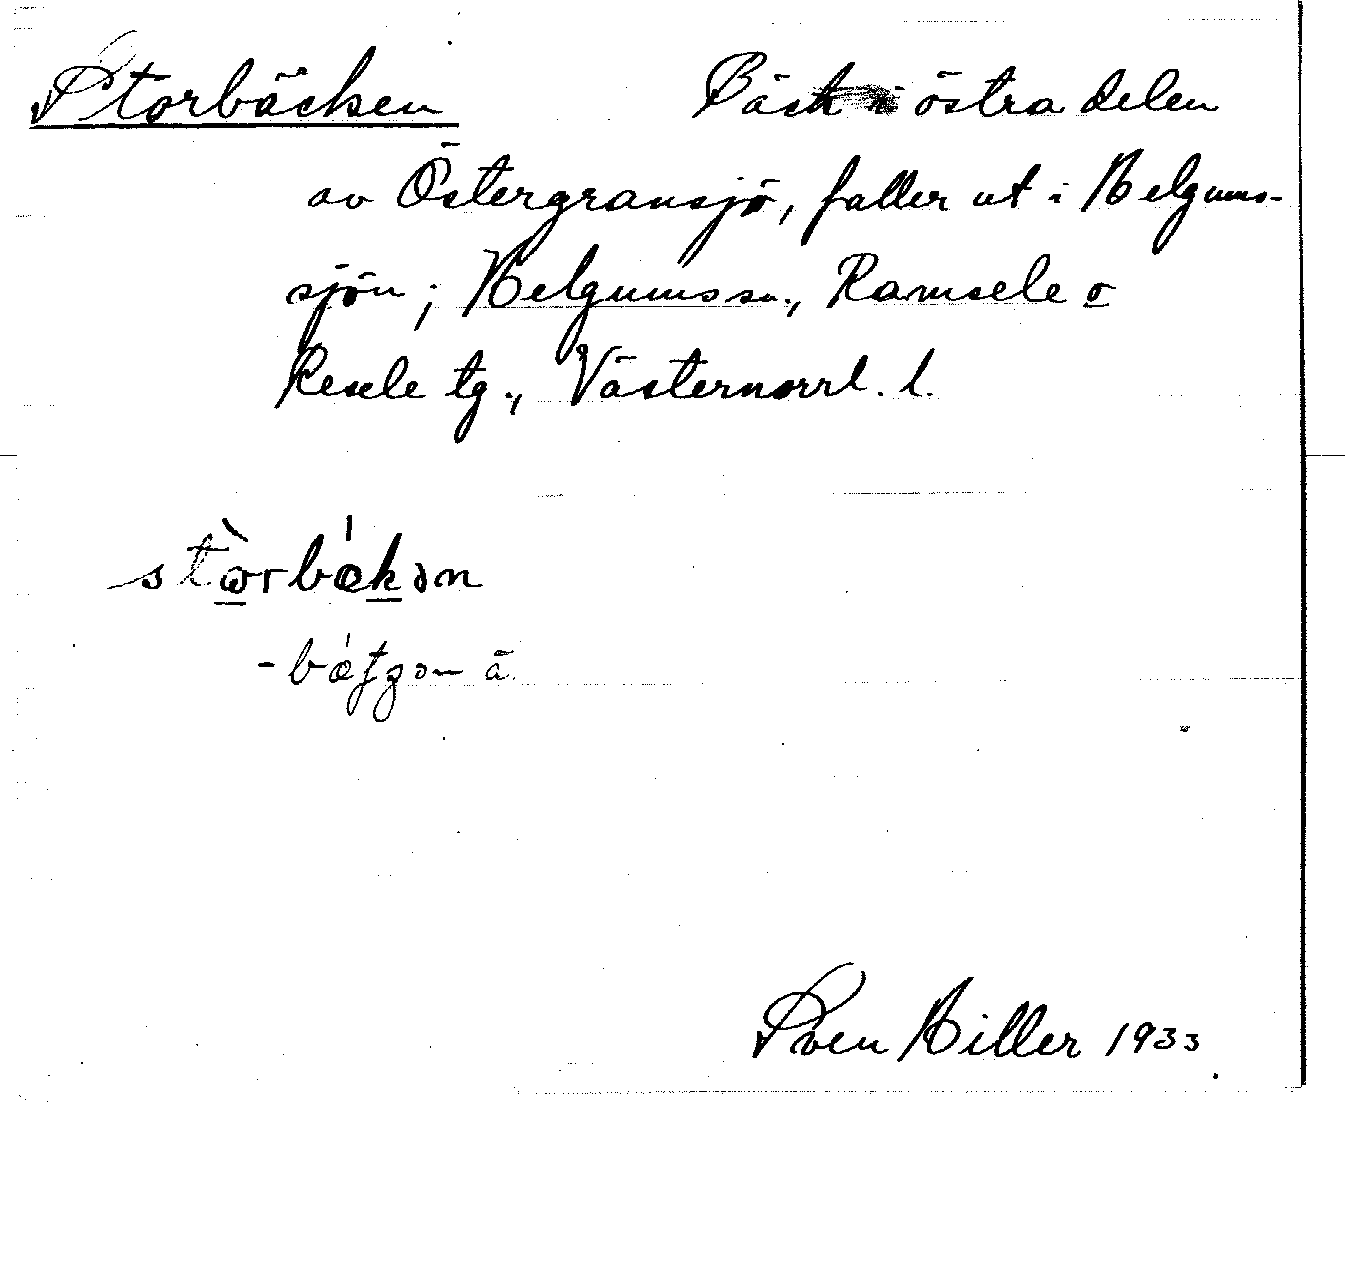 Storbäcken Bäck i östra delen
av Östergransjö, faller ut i Helgums-
sjön; Helgums sn., Ramsele o
Resele tg., Västernorrl. l.
stòrbǽkən
Sven Hiller 1933